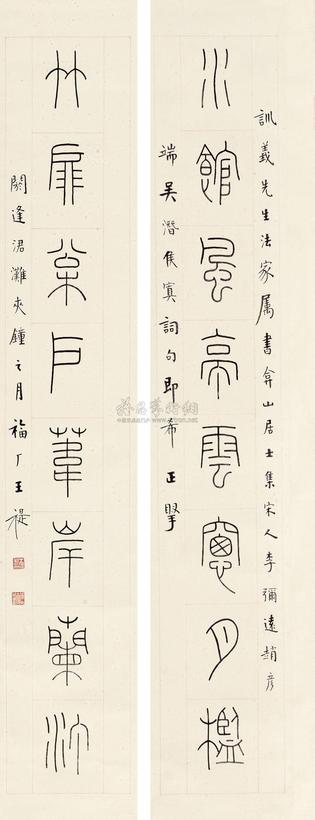 訓義先生法家屬書弇山居士集宋人李彌遠趙彦
水館風亭雲窗月檻
端吳潛侯寘詞句即希正掔
竹扉枀戶葦岸蘭汀
閼逢涒灘夾鐘之月福厂王禔